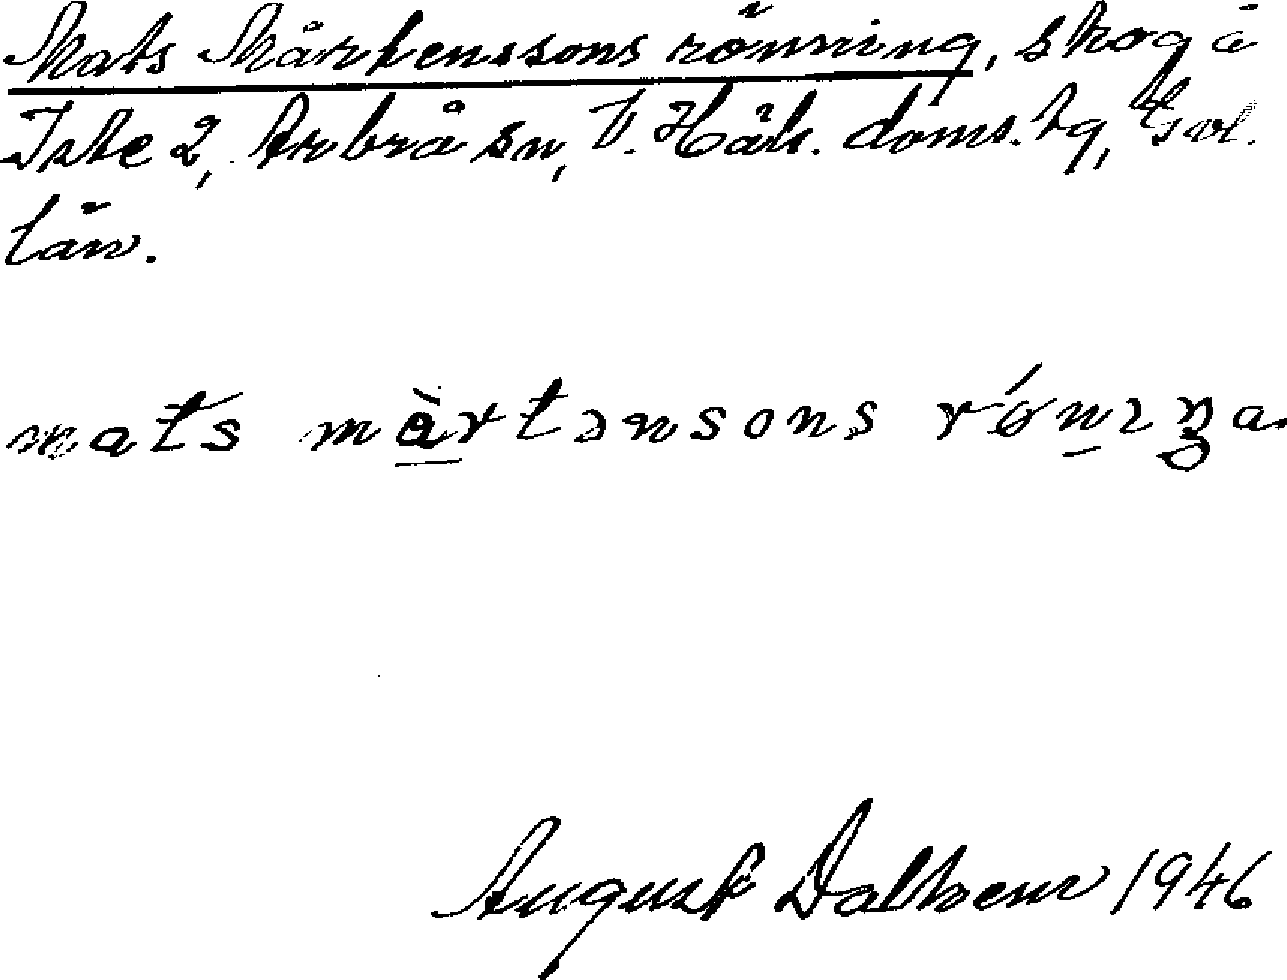 Mats Mårtenssons rönning, skog å
Iste 2, Arbrå sn, V. Häls. doms. tg, Gvl.
län.
mats màrtənsons rǿnıŋa.
August Dalhem 1946